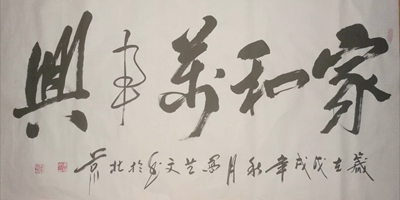 家和萬事興
歲在戊戌年秋月文於北京